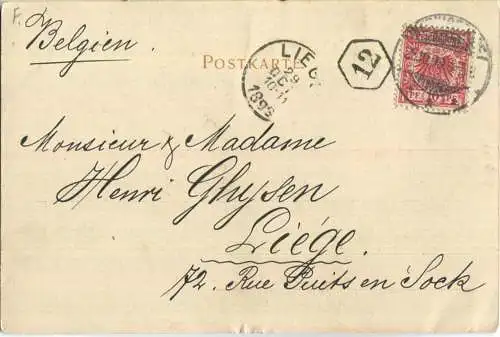 F.
Belgien.
POSTKARTE
LIEGE
29
OCT
10-11
1898
12
Monsieur & Madame
Henri Ghysen
Liége.
72. Rue Puits en Sock